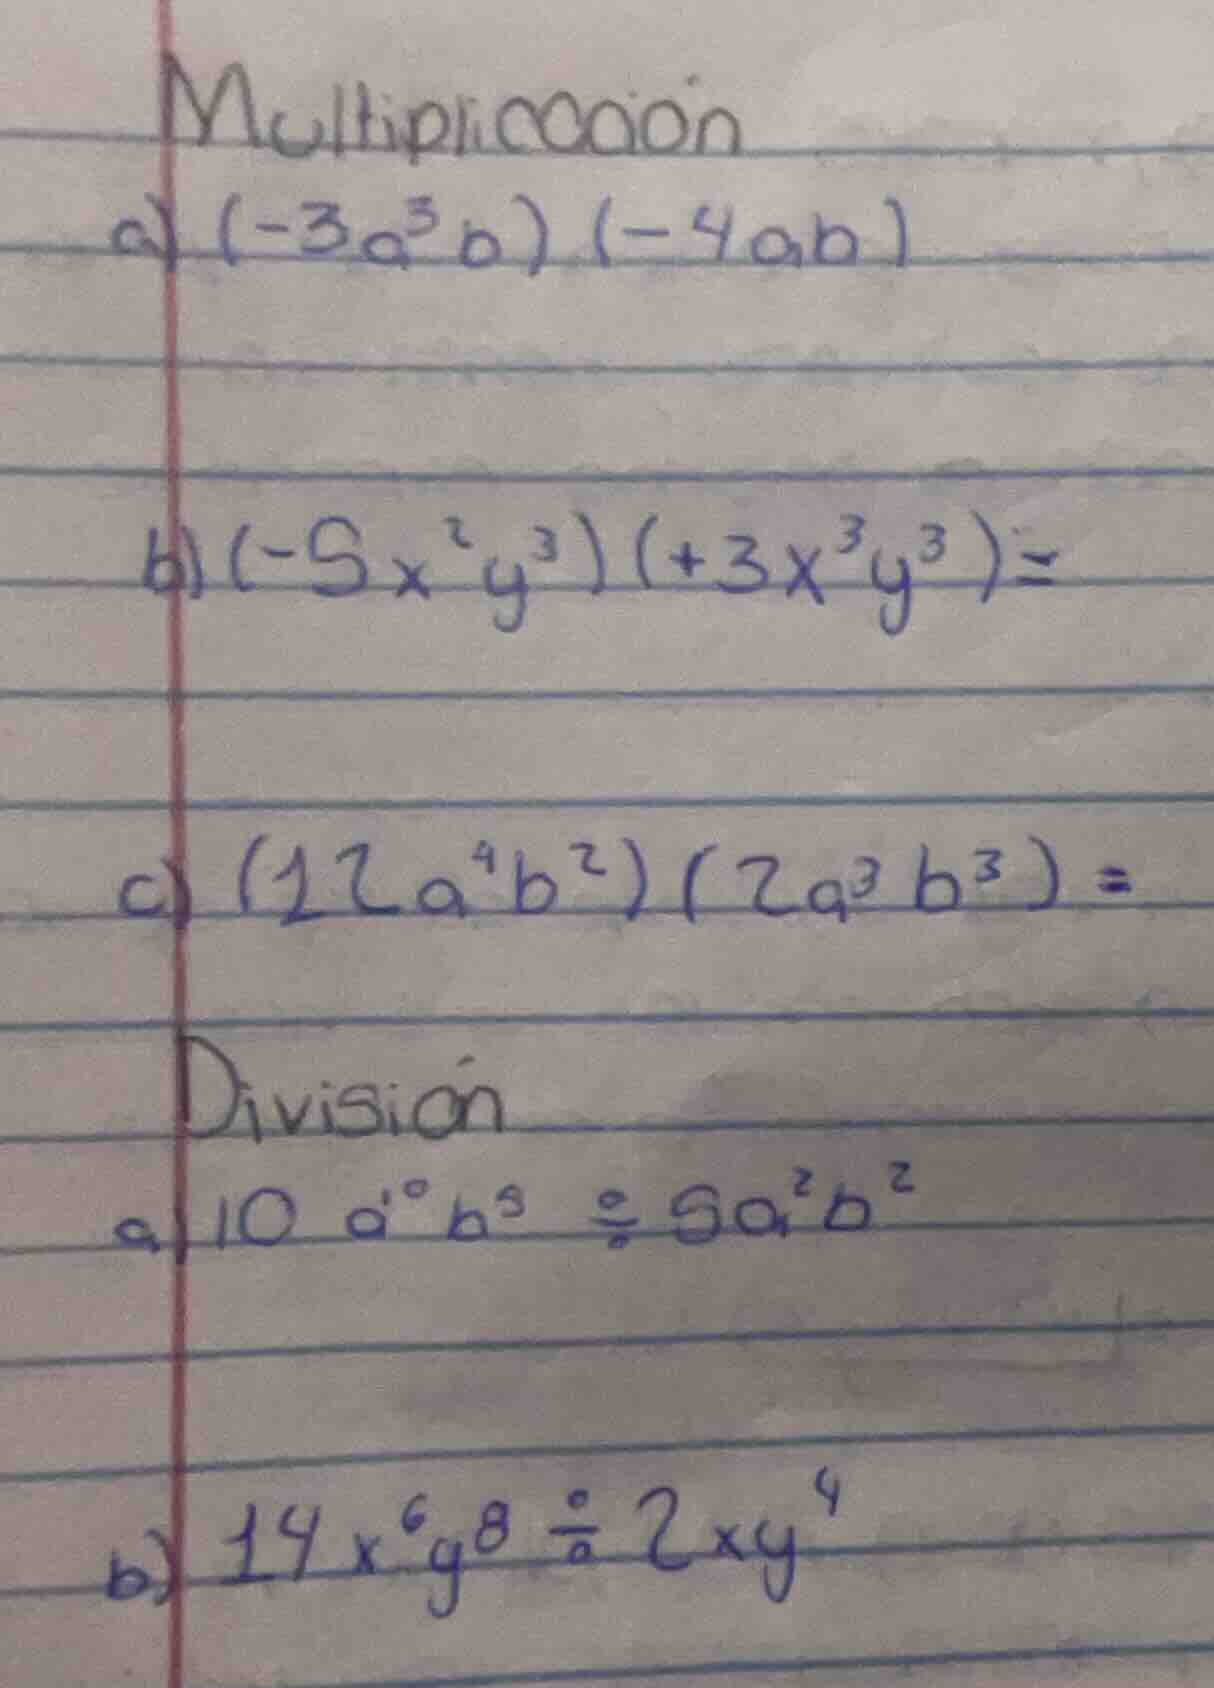 Multiplicación
a) (-3a³b) (-4ab)
b) (-5x²y³) (+3x³y³) =
c) (12a⁴b²) (2a³b³) =
División
a) 10 a¹⁰b⁵ ÷ 5a²b²
b) 14x⁶y⁸ ÷ 2xy⁴